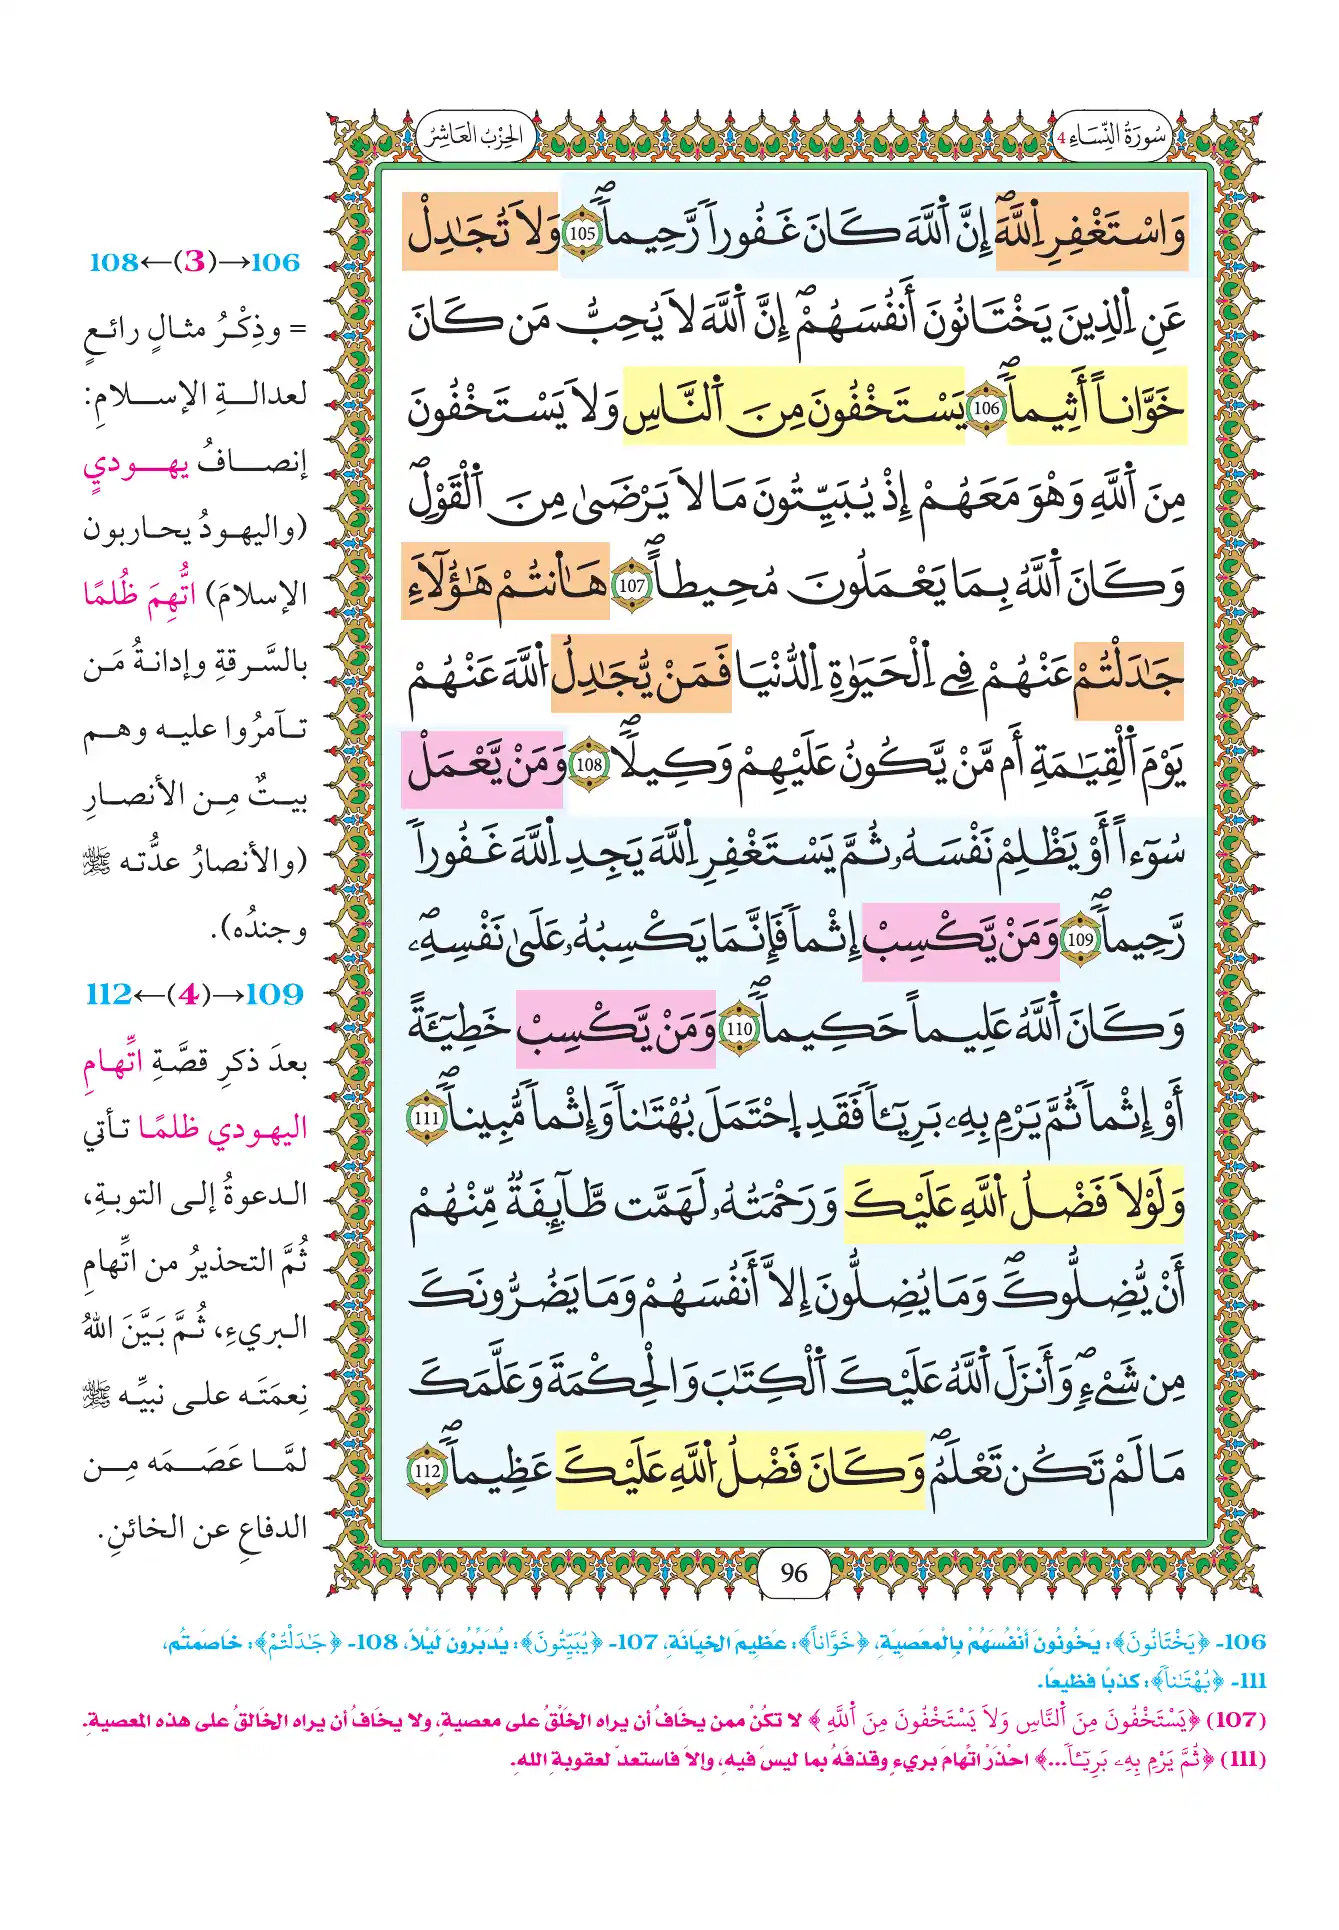 سُورَةُ النِّسَاءِ 4
الحِزْبُ العَاشِرُ
وَاسْتَغْفِرِ اِللَّهَۖ إِنَّ اَللَّهَ كَانَ غَفُوراٗ رَّحِيماٗۖ 105 وَلَا تُجَٰدِلْ
عَنِ اِلذِينَ يَخْتَانُونَ أَنفُسَهُمْۖ إِنَّ اَللَّهَ لَا يُحِبُّ مَن كَانَ
خَوَّاناً أَثِيماٗۖ 106 يَسْتَخْفُونَ مِنَ اَلنَّاسِ وَلَا يَسْتَخْفُونَ
مِنَ اَللَّهِ وَهْوَ مَعَهُمْ إِذْ يُبَيِّتُونَ مَا لَا يَرْضَىٰ مِنَ اَلْقَوْلِۖ
وَكَانَ اَللَّهُ بِمَا يَعْمَلُونَ مُحِيطاًۖ 107 هَٰأَنتُمْ هَٰؤُلَآءِ
جَٰدَلْتُمْ عَنْهُمْ فِي اِلْحَيَوٰةِ اِلدُّنْيَا فَمَنْ يُّجَٰدِلُ اُللَّهَ عَنْهُمْ
يَوْمَ اَلْقِيَٰمَةِ أَم مَّنْ يَّكُونُ عَلَيْهِمْ وَكِيلاٗۖ 108 وَمَنْ يَّعْمَلْ
سُوٓءاً أَوْ يَظْلِمْ نَفْسَهُۥ ثُمَّ يَسْتَغْفِرِ اِللَّهَ يَجِدِ اِللَّهَ غَفُوراٗ
رَّحِيماٗۖ 109 وَمَنْ يَّكْسِبْ إِثْماٗ فَإِنَّمَا يَكْسِبُهُۥ عَلَىٰ نَفْسِهِۦۖ
وَكَانَ اَللَّهُ عَلِيماً حَكِيماٗۖ 110 وَمَنْ يَّكْسِبْ خَطِيٓـَٔةً
أَوِ اِثْماٗ ثُمَّ يَرْمِ بِهِۦ بَرِيٓـٔاٗ فَقَدِ اِحْتَمَلَ بُهْتَٰناٗ وَإِثْماٗ مُّبِيناٗۖ 111
وَلَوْلَا فَضْلُ اُللَّهِ عَلَيْكَ وَرَحْمَتُهُۥ لَهَمَّت طَّآئِفَةٞ مِّنْهُمْ
أَنْ يُّضِلُّوكَۖ وَمَا يُضِلُّونَ إِلَّا أَنفُسَهُمْ وَمَا يَضُرُّونَكَ
مِن شَيْءٖۖ وَأَنزَلَ اَللَّهُ عَلَيْكَ اَلْكِتَٰبَ وَالْحِكْمَةَ وَعَلَّمَكَ
مَا لَمْ تَكُن تَعْلَمُۖ وَكَانَ فَضْلُ اُللَّهِ عَلَيْكَ عَظِيماٗۖ 112
96
106→(3)←108
= وذِكْرُ مثالٍ رائعٍ
لعدالةِ الإسلامِ:
إنصافُ يهوديٍ
(واليهودُ يحاربون
الإسلامَ) اتُّهِمَ ظُلمًا
بالسَّرقةِ وإدانةُ مَن
تآمرُوا عليه وهم
بيتٌ مِن الأنصارِ
(والأنصارُ عدَّته ﷺ
وجندُه).
109→(4)←112
بعدَ ذكرِ قصَّةِ اتِّهامِ
اليهودي ظلمًا تأتي
الدعوةُ إلى التوبةِ،
ثُمَّ التحذيرُ من اتِّهامِ
البريءِ، ثُمَّ بَيَّنَ اللهُ
نِعمَتَه على نبيِّه ﷺ
لمَّا عَصَمَه مِن
الدفاعِ عن الخائنِ.
106- ﴿يَخْتَانُونَ﴾: يَخُونُونَ أَنْفُسَهُمْ بِالْمَعصِيَةِ، ﴿خَوَّاناً﴾: عَظِيمَ الخِيَانَةِ، 107- ﴿يُبَيِّتُونَ﴾: يُدَبِّرُونَ لَيْلاً، 108- ﴿جَٰدَلْتُمْ﴾: خَاصَمتُم،
111- ﴿بُهْتَٰناٗ﴾: كذبًا فظيعًا.
(107) ﴿يَسْتَخْفُونَ مِنَ اَلنَّاسِ وَلَا يَسْتَخْفُونَ مِنَ اَللَّهِ﴾ لا تكُنْ ممن يخَافُ أن يراه الخَلْقُ على معصيةٍ، ولا يخَافُ أن يراه الخَالقُ على هذه المعصيةِ.
(111) ﴿ثُمَّ يَرْمِ بِهِۦ بَرِيٓـٔاٗ...﴾ احْذَرْ اتِّهامَ بريءٍ وقذفَهُ بما ليسَ فيه، وإلا فاستعدّ لعقوبةِ اللهِ.